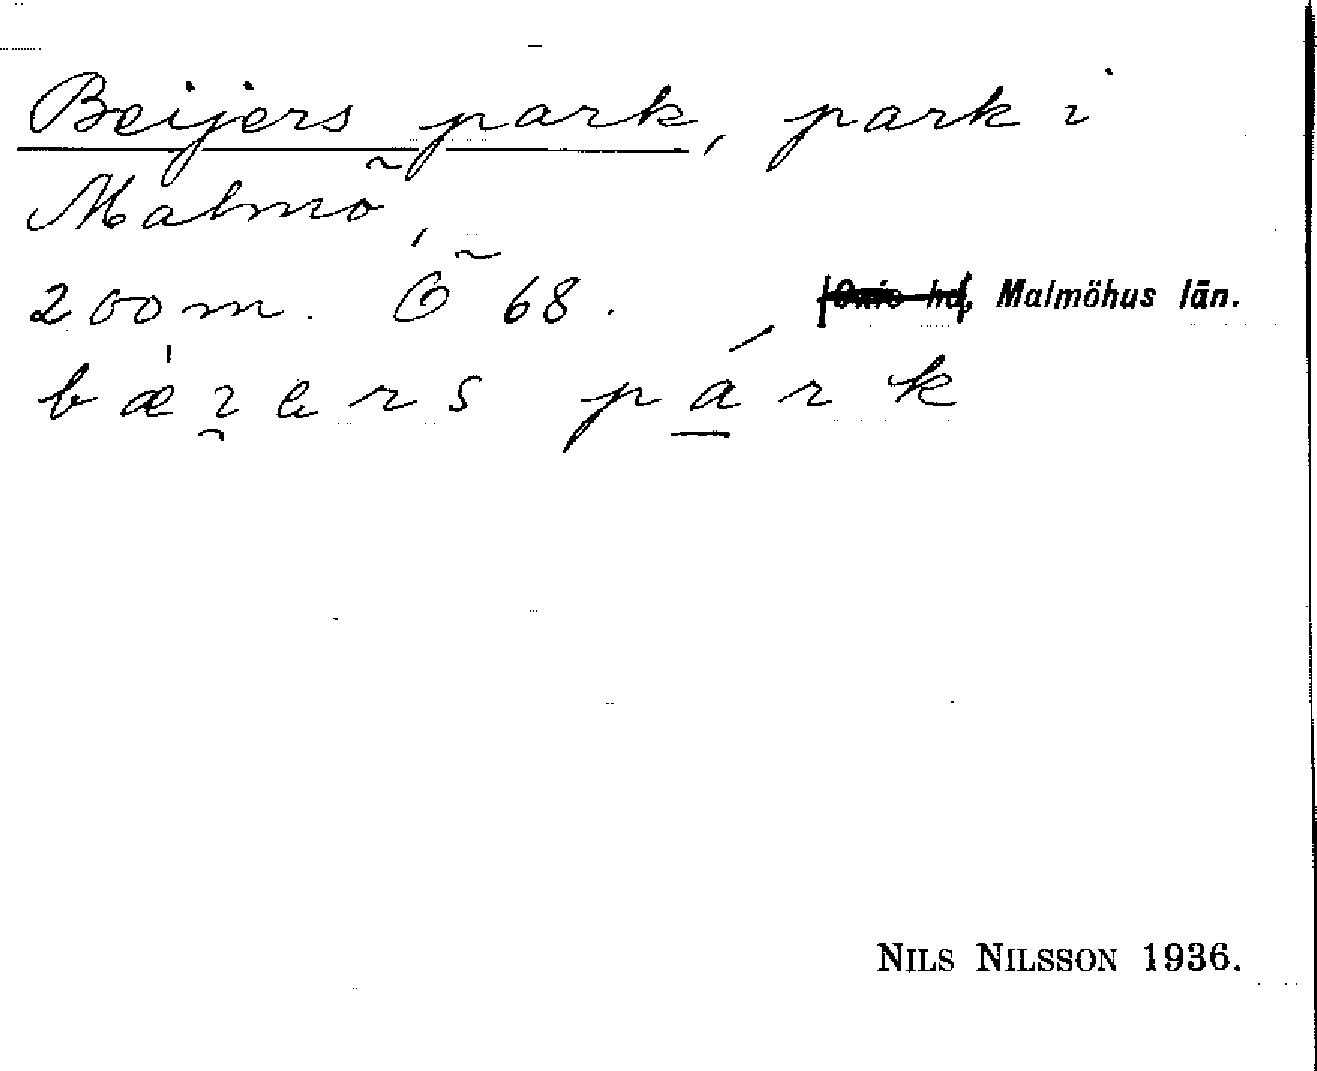 Beijers park, park i
Malmö,
200 m. Ö 68. Malmöhus län.
bæ̍ı̯ers pá̠rk
NILS NILSSON 1936.